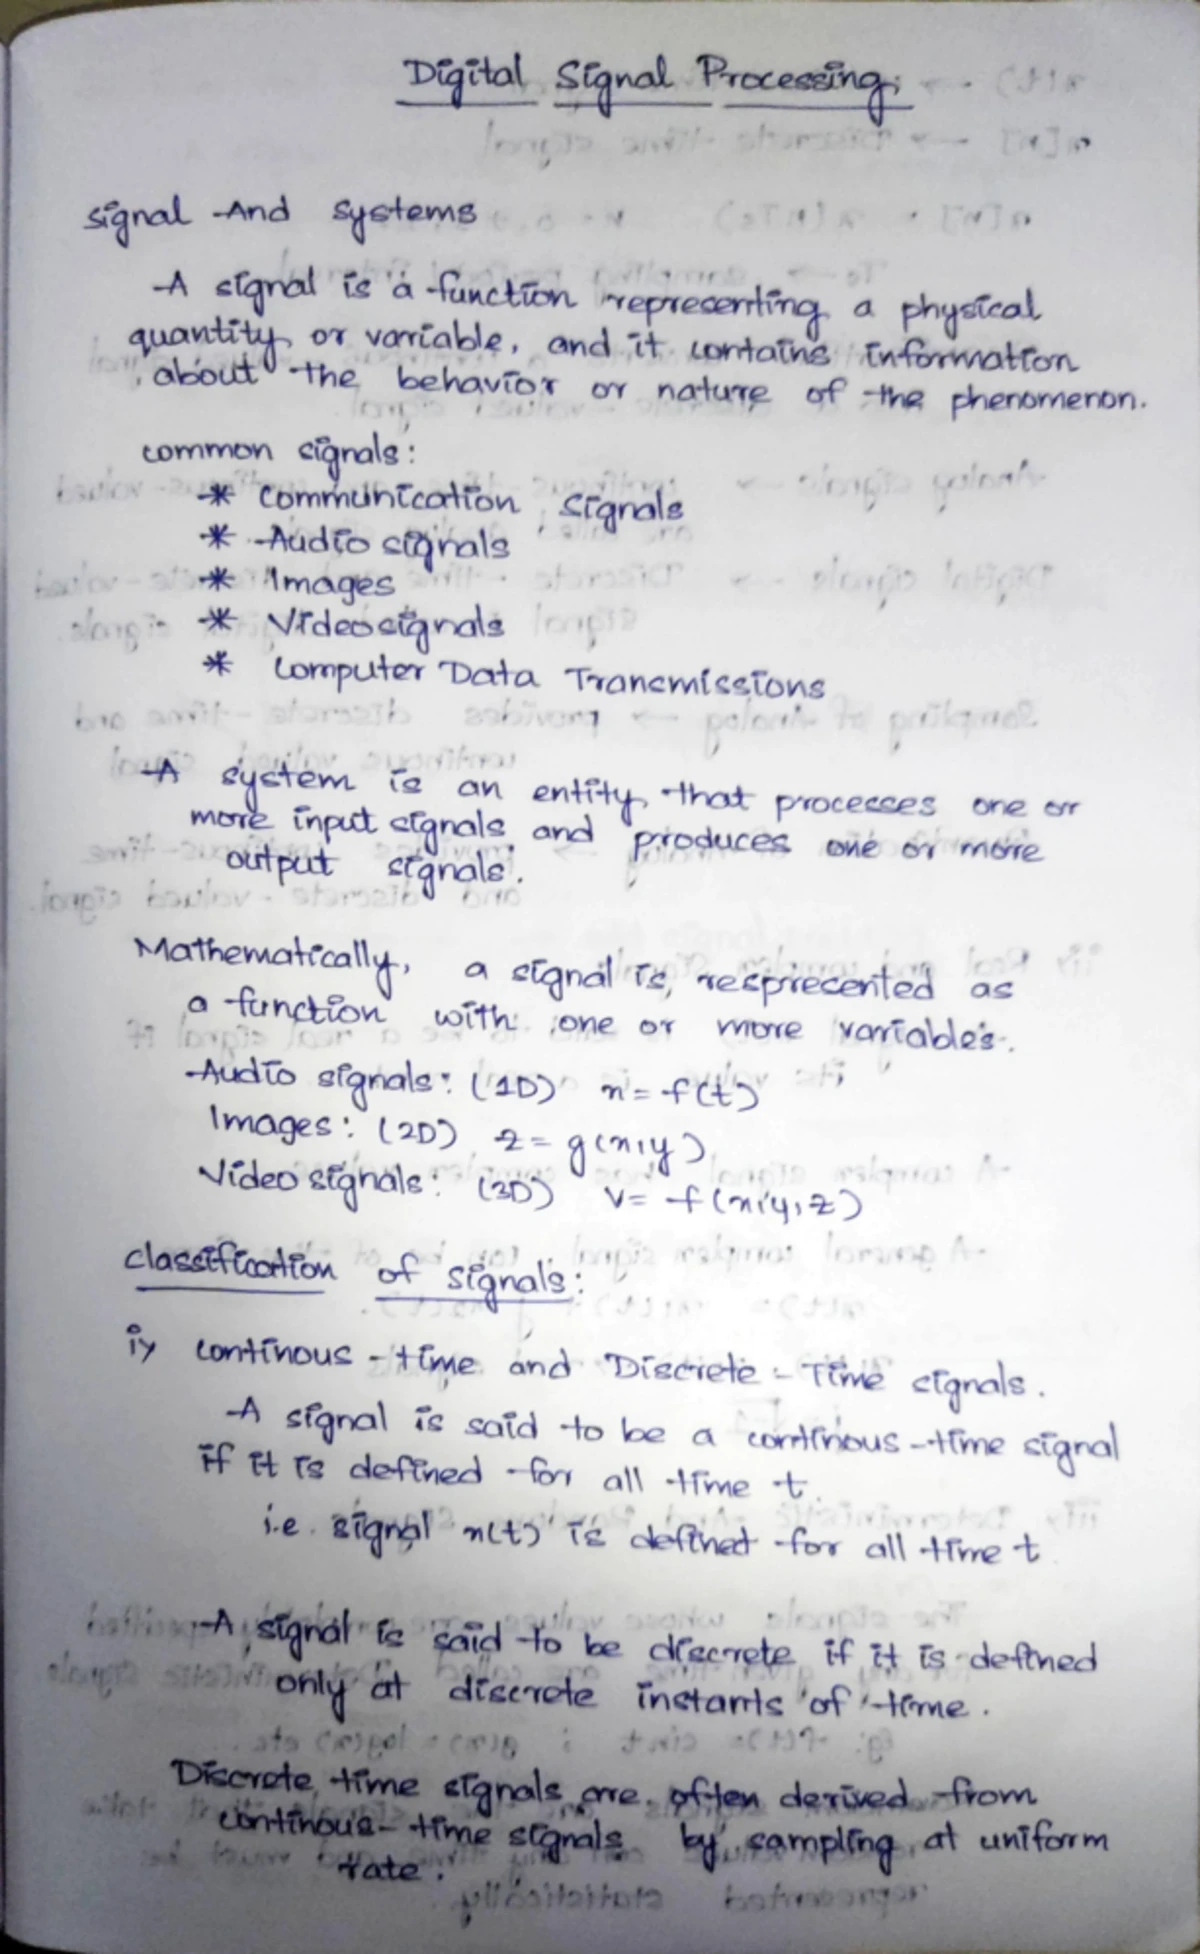 Digital Signal Processing:
signal And systems
A signal is a function representing a physical
quantity or variable, and it contains information
about the behavior or nature of the phenomenon.
common signals:
* Communication Signals
* Audio signals
* Images
* Video signals
* Computer Data Transmissions
A system is an entity that processes one or
more input signals and produces one or more
output signals.
Mathematically, a signal is respresented as
a function with one or more variables.
Audio signals: (1D) x = f(t)
Images: (2D) z = g(x,y)
Video signals: (3D) v = f(x,y,z)
classification of signals:
i) continous-time and Discrete-Time signals.
A signal is said to be a continous-time signal
if it is defined for all time t.
i.e. signal x(t) is defined for all time t
A signal is said to be discrete if it is defined
only at discrete instants of time.
Discrete time signals are often derived from
continous-time signals by sampling at uniform
rate.